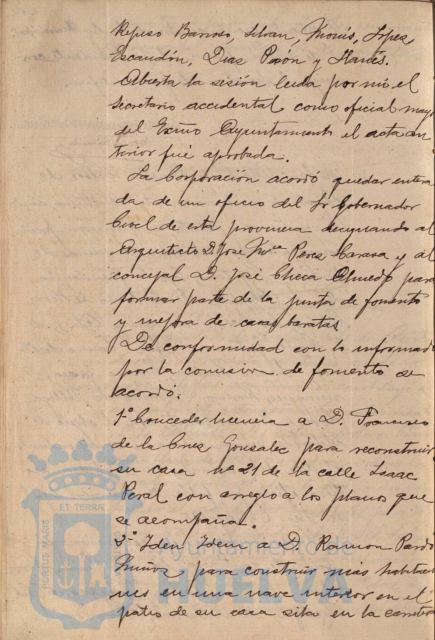 Repiso Barroso, Silvan, Monís, López
Escandón, Dias Pavón y Hanés.
Abierta la sesión leida por mi el
Secretario accidental como oficial mayor
del Excmo Ayuntamiento el acta an
terior fué aprobada.
La Corporación acordó quedar entera
da de un oficio del Sr Gobernador
Civil de esta provincia designando al
Arquitecto D. José Mª Perez Carasa y al
concejal D. José Checa Olmedo para
formar parte de la junta de fomento
y mejora de casas baratas.
De conformidad con lo informado
por la comisión de fomento se
acordó.
1º Conceder licencia a D. Francisco
de la Cruz Gonzalez para reconstruir
su casa nº 21 de la calle Isaac
Peral con arreglo a los planos que
se acompaña.
3º Iden Idem a D. Ramon Pardo
Muñoz para construir mas habitacio
nes en una nave interior en el
patio de su casa sita en la carretera
PORTUS MARIS
ET TERRAE
Ayuntamiento de
HUELVA